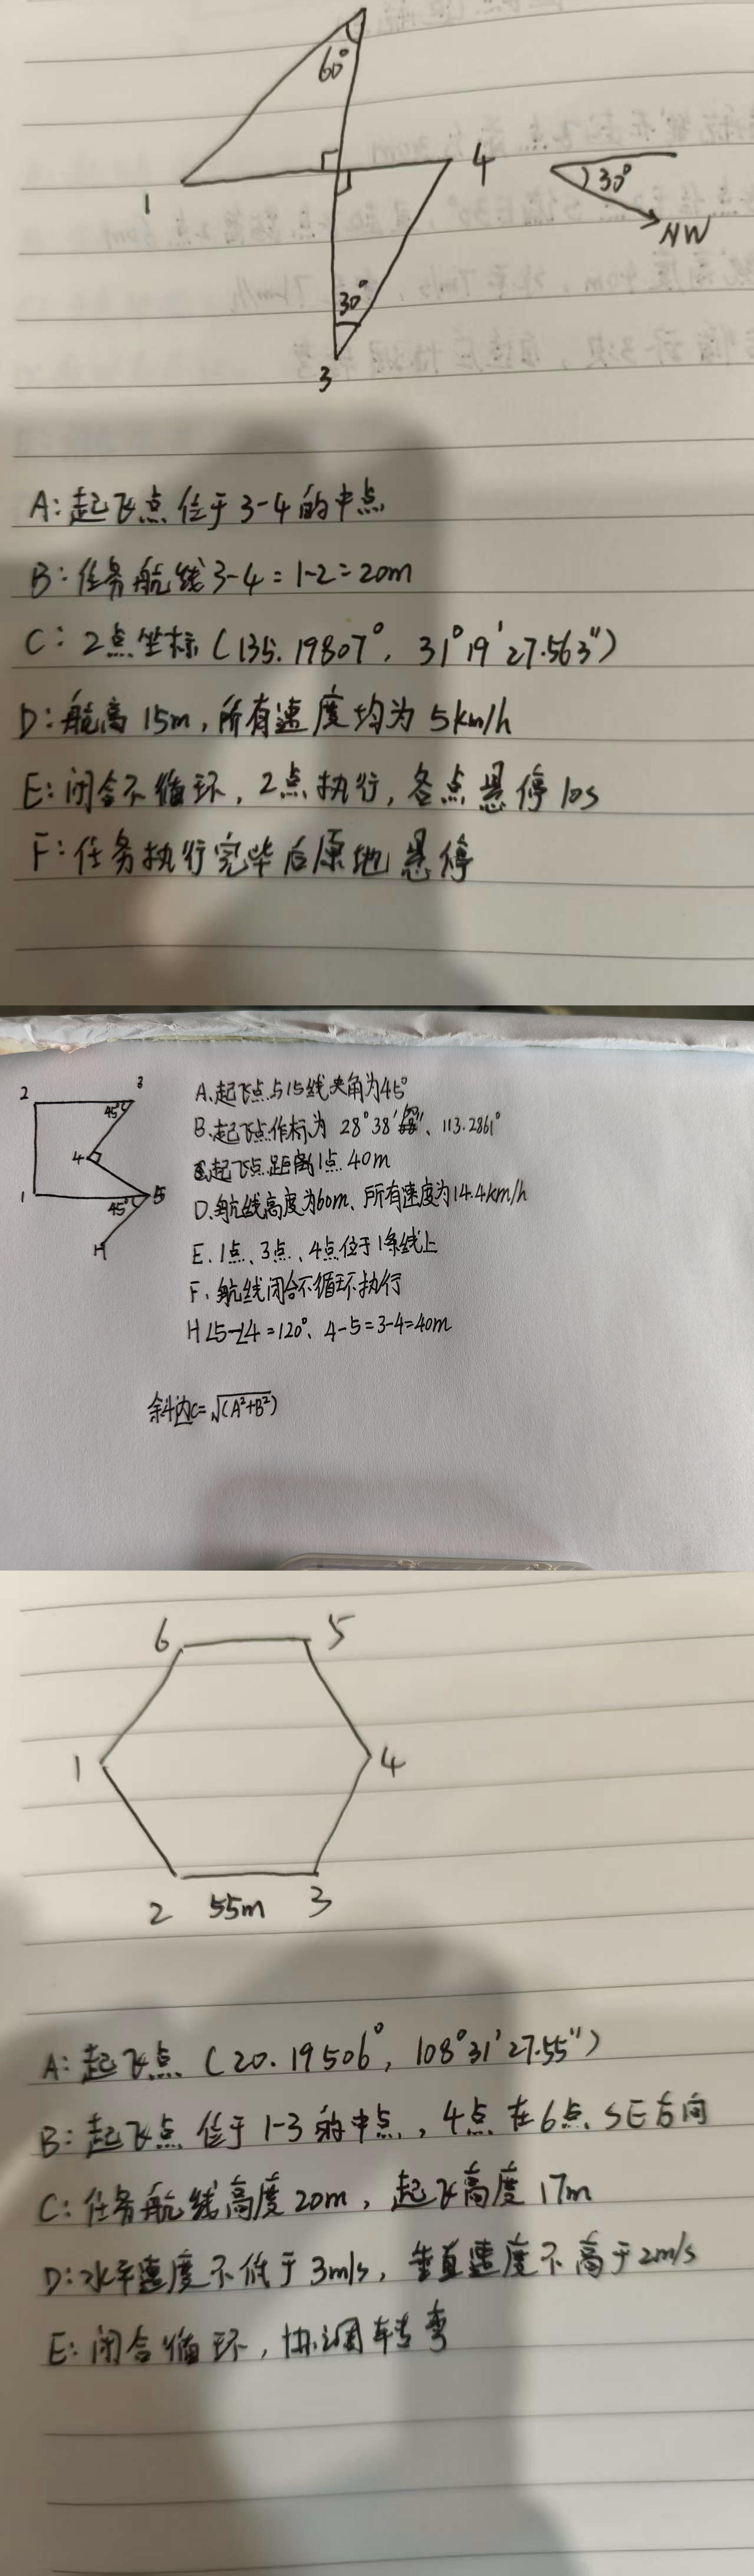 60°
1
4
30°
NW
30°
3
A: 起飞点位于3-4的中点
B: 任务航线3-4=1-2=20m
C: 2点坐标(135.19807°, 31°19′27.563″)
D: 航高15m, 所有速度均为5km/h
E: 闭合不循环, 2点执行, 各点悬停10s
F: 任务执行完毕后原地悬停
2
3
45°
4
1
5
45°
H
A、起飞点与15线夹角为45°
B、起飞点作标为28°38′ 、113.2861°
起飞点距离1点40m
D、航线高度为60m、所有速度为14.4km/h
E、1点、3点、4点位于1条线上
F、航线闭合不循环执行
H∠5-∠4=120°、4-5=3-4=40m
斜边c=√(A²+B²)
6
5
1
4
2 55m 3
A: 起飞点(20.19506°, 108°31′27.55″)
B: 起飞点位于1-3的中点, 4点在6点SE方向
C: 任务航线高度20m, 起飞高度17m
D: 水平速度不低于3m/s, 垂直速度不高于2m/s
E: 闭合循环, 协调转弯